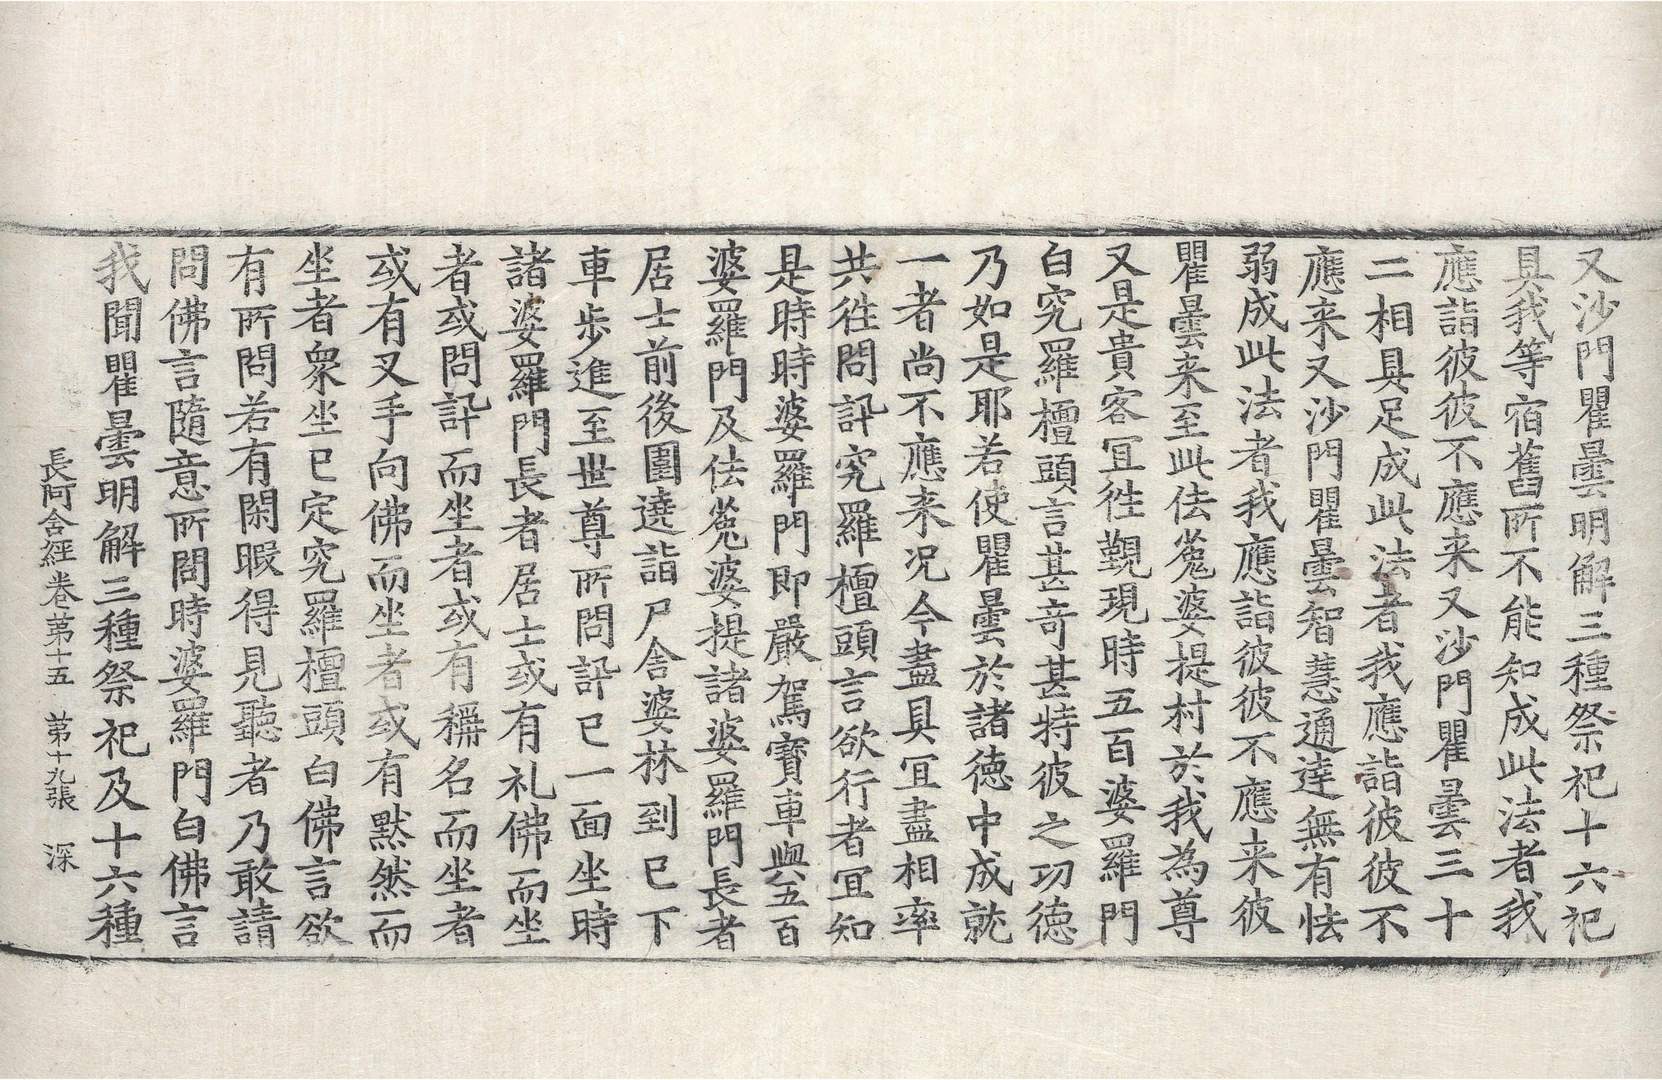 又沙門瞿曇明解三種祭祀十六祀
具我等宿舊所不能知成此法者我
應詣彼彼不應来又沙門瞿曇三十
二相具足成此法者我應詣彼彼不
應来又沙門瞿曇智慧通達無有怯
弱成此法者我應詣彼彼不應来彼
瞿曇来至此佉㝹婆提村於我為尊
又是貴客冝徃覲現時五百婆羅門
白究羅檀頭言甚竒甚特彼之功徳
乃如是耶若使瞿曇於諸徳中成就
一者尚不應来况今盡具冝盡相率
共徃問訊究羅檀頭言欲行者冝知
是時時婆羅門即嚴駕寶車與五百
婆羅門及佉㝹婆提諸婆羅門長者
居士前後圍遶詣尸舍婆林到已下
車步進至世尊所問訊已一面坐時
諸婆羅門長者居士或有礼佛而坐
者或問訊而坐者或有稱名而坐者
或有叉手向佛而坐者或有黙然而
坐者衆坐已定究羅檀頭白佛言欲
有所問若有閑暇得見聽者乃敢請
問佛言隨意所問時婆羅門白佛言
我聞瞿曇明解三種祭祀及十六種
長阿含經卷第十五　第十九張　深